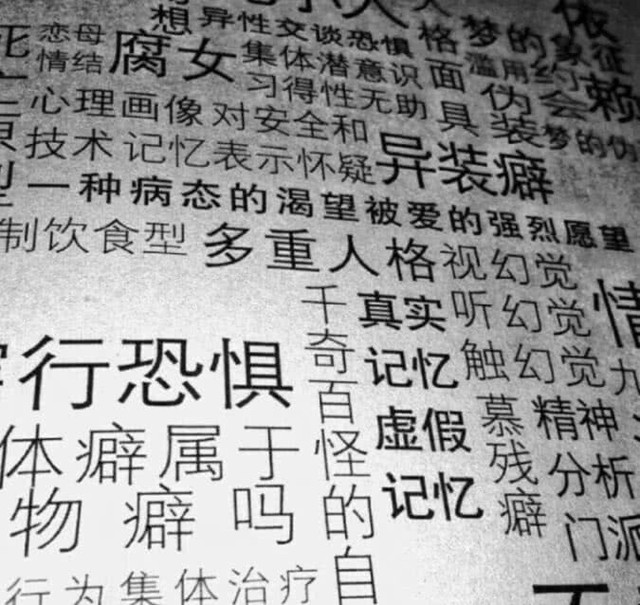 想异性交谈恐惧
恋母
情结
腐女
集体潜意识
习得性无助
格
面
具
梦的象征
滥用约会
伪装
依赖
心理画像
对安全和
梦的伪
技术
记忆表示怀疑
异装癖
一种病态的渴望被爱的强烈愿望
制饮食型
多重人格
视幻觉
听幻觉
触幻觉
情
千奇百怪的自
真实
记忆
虚假
记忆
行恐惧
慕残癖
精神
分析
门派
九
体癖属于
物癖吗
行为集体治疗